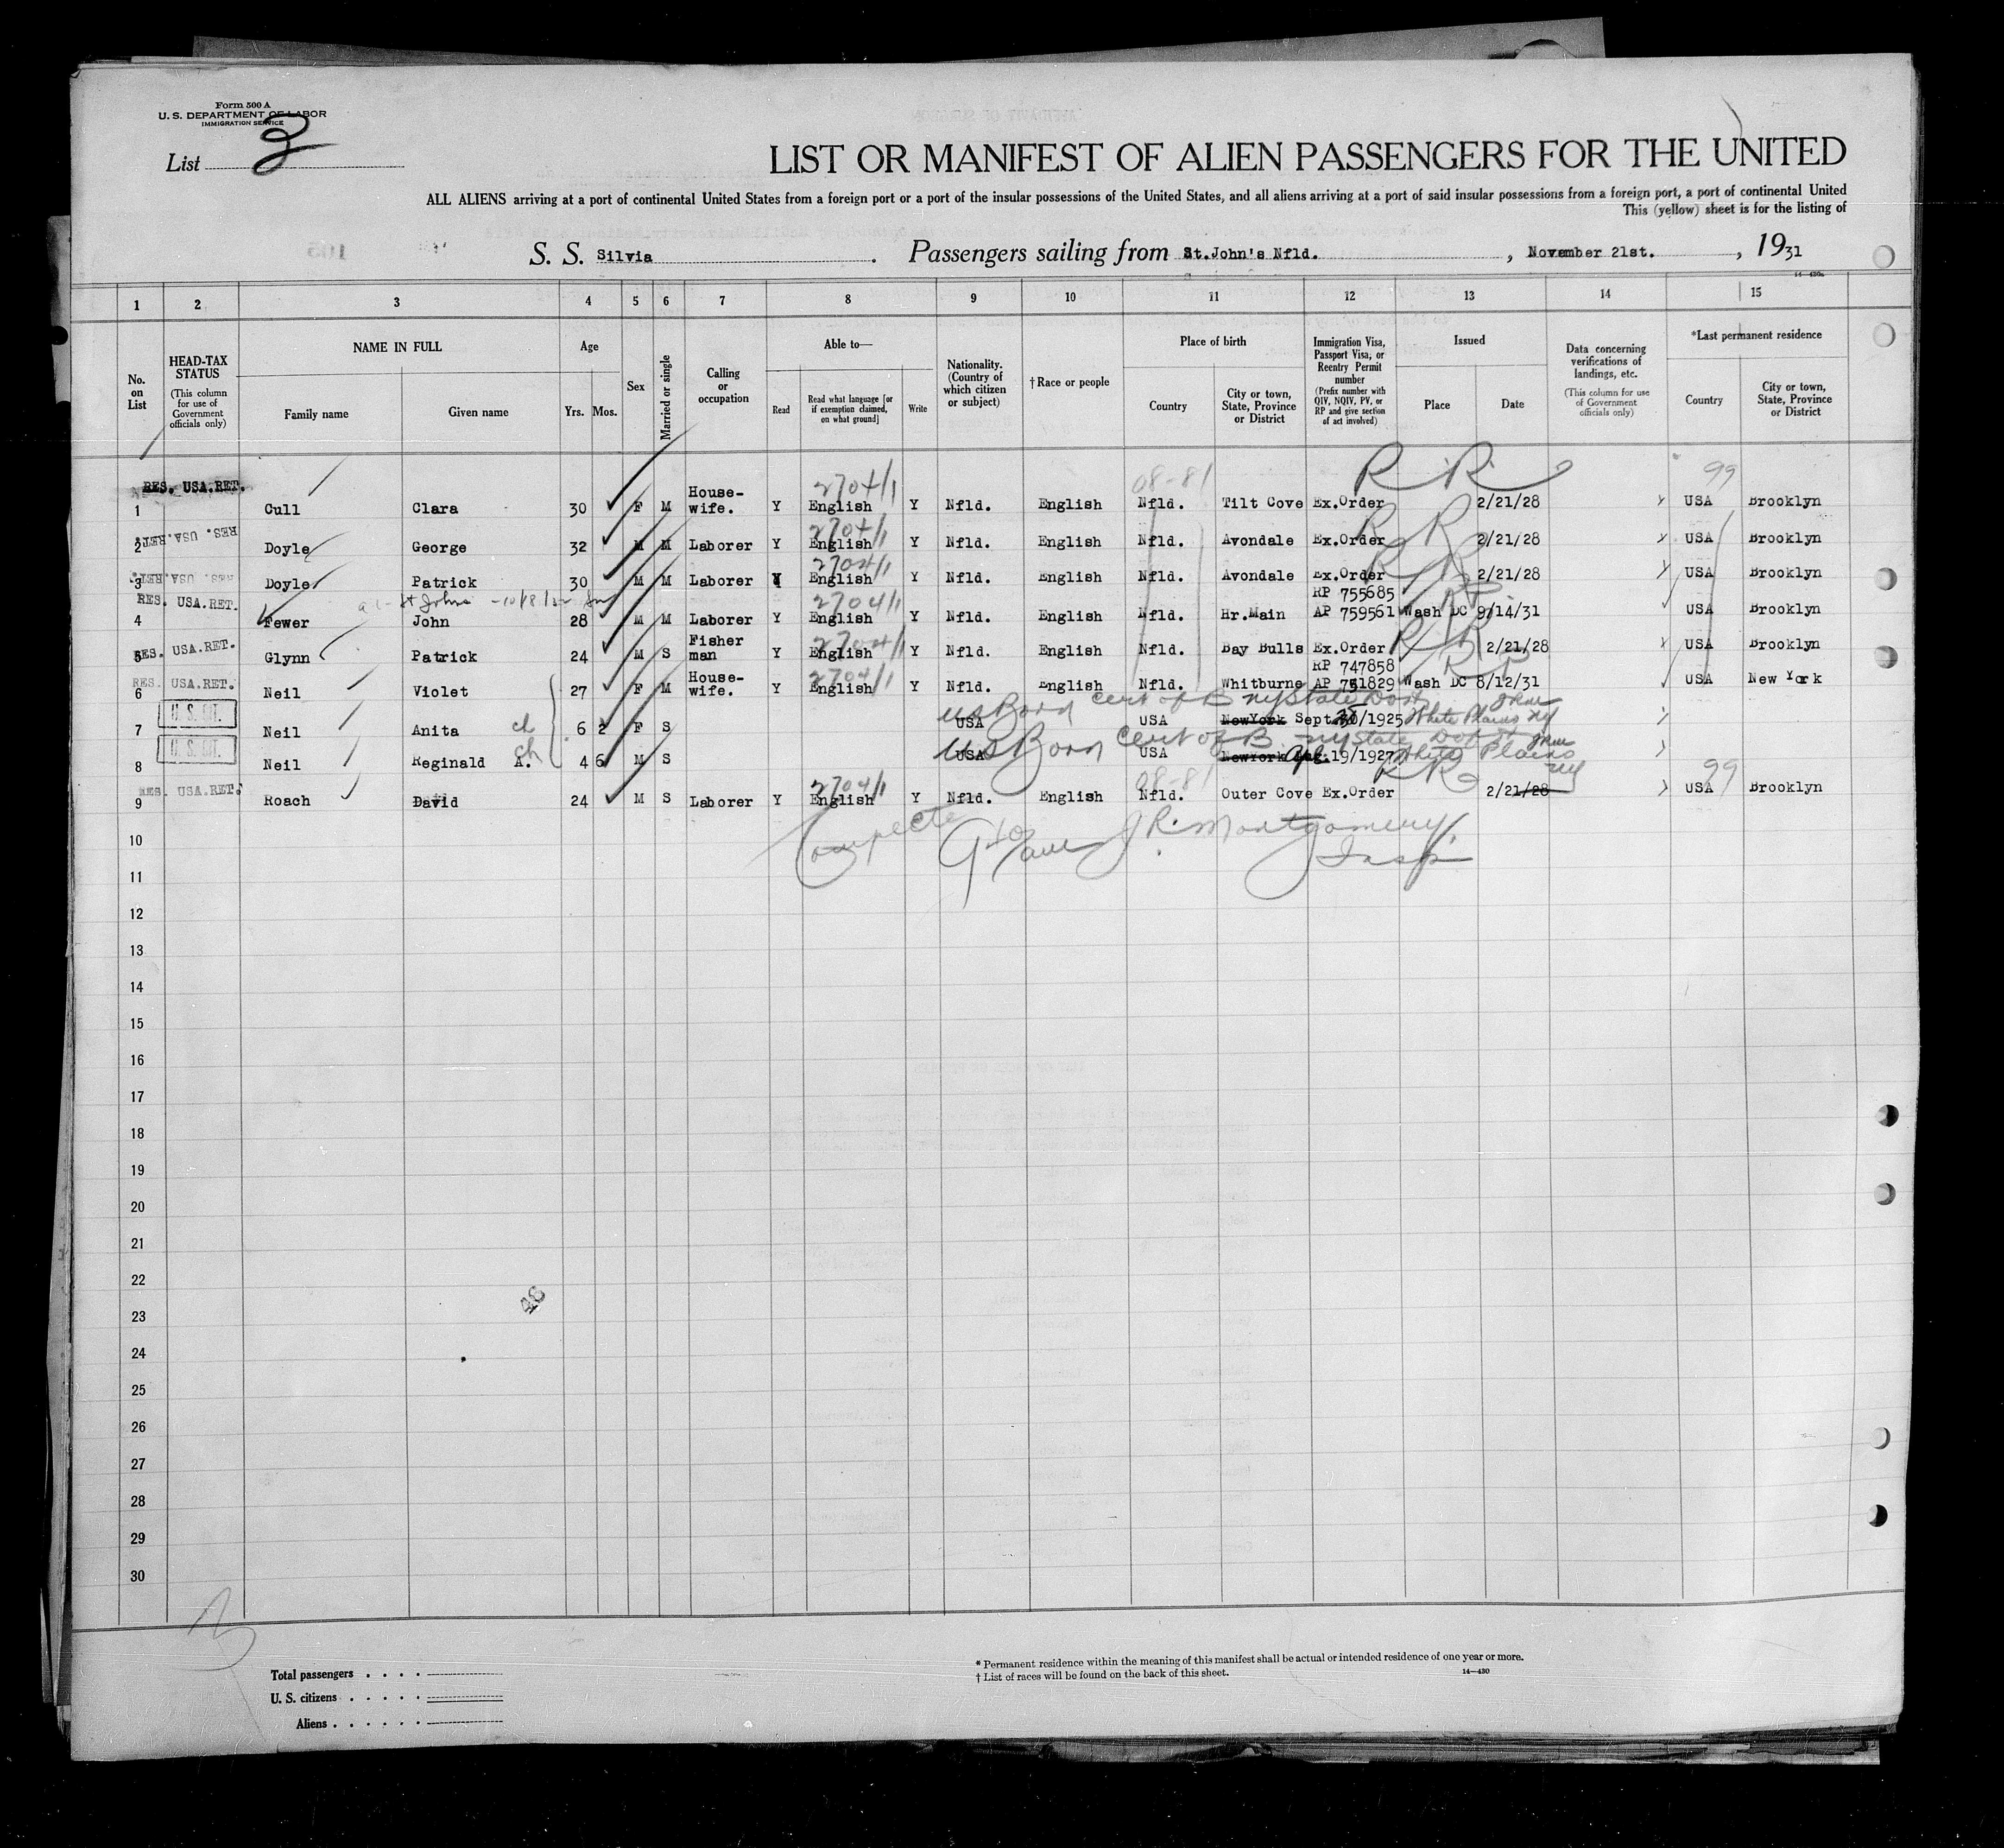 Form 500 A
U. S. DEPARTMENT OF LABOR
IMMIGRATION SERVICE
List 3
LIST OR MANIFEST OF ALIEN PASSENGERS FOR THE UNITED
ALL ALIENS arriving at a port of continental United States from a foreign port or a port of the insular possessions of the United States, and all aliens arriving at a port of said insular possessions from a foreign port, a port of continental United
This (yellow) sheet is for the listing of
S. S. Silvia. Passengers sailing from St.John's Nfld. , November 21st. , 1931
14—430a
1 2 3 4 5 6 7 8 9 10 11 12 13 14 15
No. on List
HEAD-TAX STATUS (This column for use of Government officials only)
NAME IN FULL Family name Given name
Age Yrs. Mos.
Sex
Married or single
Calling or occupation
Able to— Read Read what language [or if exemption claimed, on what ground] Write
Nationality. (Country of which citizen or subject)
†Race or people
Place of birth Country City or town, State, Province or District
Immigration Visa, Passport Visa, or Reentry Permit number (Prefix number with QIV, NQIV, PV, or RP and give section of act involved)
Issued Place Date
Data concerning verifications of landings, etc. (This column for use of Government officials only)
*Last permanent residence Country City or town, State, Province or District
RES. USA.RET. 2704/1 08-81 RR 99
1 Cull Clara 30 F M House-wife. Y English Y Nfld. English Nfld. Tilt Cove Ex.Order 2/21/28 USA Brooklyn
RES. USA.RET. 2704/1 RR
2 Doyle George 32 M M Laborer Y English Y Nfld. English Nfld. Avondale Ex.Order 2/21/28 USA Brooklyn
RES. USA.RET. 2704/1 RR
3 Doyle Patrick 30 M M Laborer Y English Y Nfld. English Nfld. Avondale Ex.Order 2/21/28 USA Brooklyn
RES. USA.RET. St Johns 2704/1 RP 755685
4 Fewer John 28 M M Laborer Y English Y Nfld. English Nfld. Hr.Main AP 759561 Wash DC 9/14/31 USA Brooklyn
RES. USA.RET. 2704/1 RR
5 Glynn Patrick 24 M S Fisher man Y English Y Nfld. English Nfld. Bay Bulls Ex.Order 2/21/28 USA Brooklyn
RES. USA.RET. 2704/1 RP 747858
6 Neil Violet 27 F M House-wife. Y English Y Nfld. English Nfld. Whitburne AP 751829 Wash DC 8/12/31 USA New York
U. S. CIT. US Born Cert of B NY State
7 Neil Anita ch 6 2 F S USA USA NewYork Sept /1925 White Plains NY
U. S. CIT. US Born Cert of B NY State
8 Neil Reginald A. ch 4 6 M S USA USA NewYork Apr. 19/1927 White Plains NY
RES. USA.RET. 2704/1 08-81 RR 99
9 Roach David 24 M S Laborer Y English Y Nfld. English Nfld. Outer Cove Ex.Order 2/21/28 USA Brooklyn
10 J R. Montgomery,
11 Insp
12
13
14
15
16
17
18
19
20
21
22
23
24
25
26
27
28
29
30
3
Total passengers
U. S. citizens
Aliens
* Permanent residence within the meaning of this manifest shall be actual or intended residence of one year or more.
† List of races will be found on the back of this sheet.
14—430